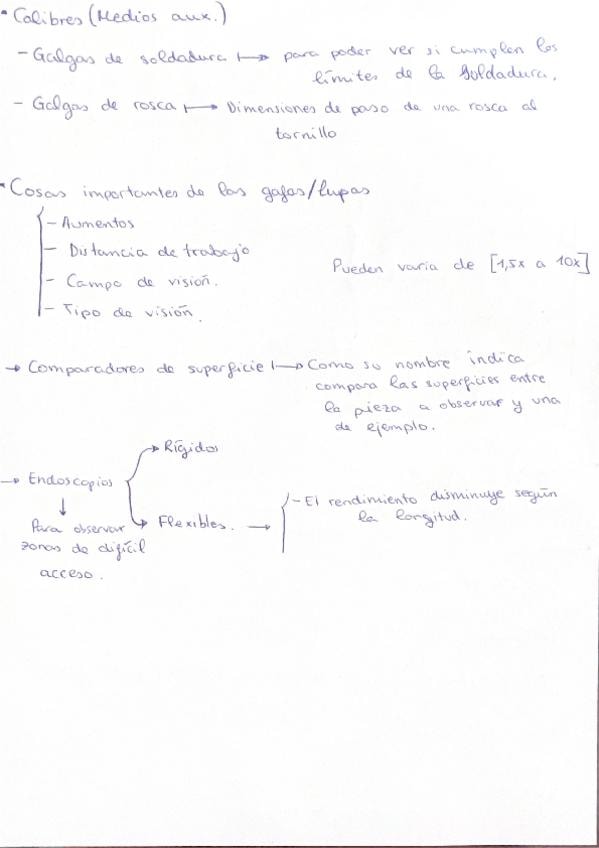 • Calibres (Medios aux.)
- Galgas de soldadura ↦ para poder ver si cumplen los
límites de la soldadura.
- Galgas de rosca ↦ Dimensiones de paso de una rosca al
tornillo
• Cosas importantes de las gafas/lupas
- Aumentos
- Distancia de trabajo
- Campo de visión.
- Tipo de visión.
Pueden varia de [1,5x a 10x]
→ Comparadores de superficie ↦ Como su nombre indica
compara las superficies entre
la pieza a observar y una
de ejemplo.
→ Endoscopios
↓
Para observar
zonas de difícil
acceso.
→ Rígidos
→ Flexibles. →
- El rendimiento disminuye según
la longitud.